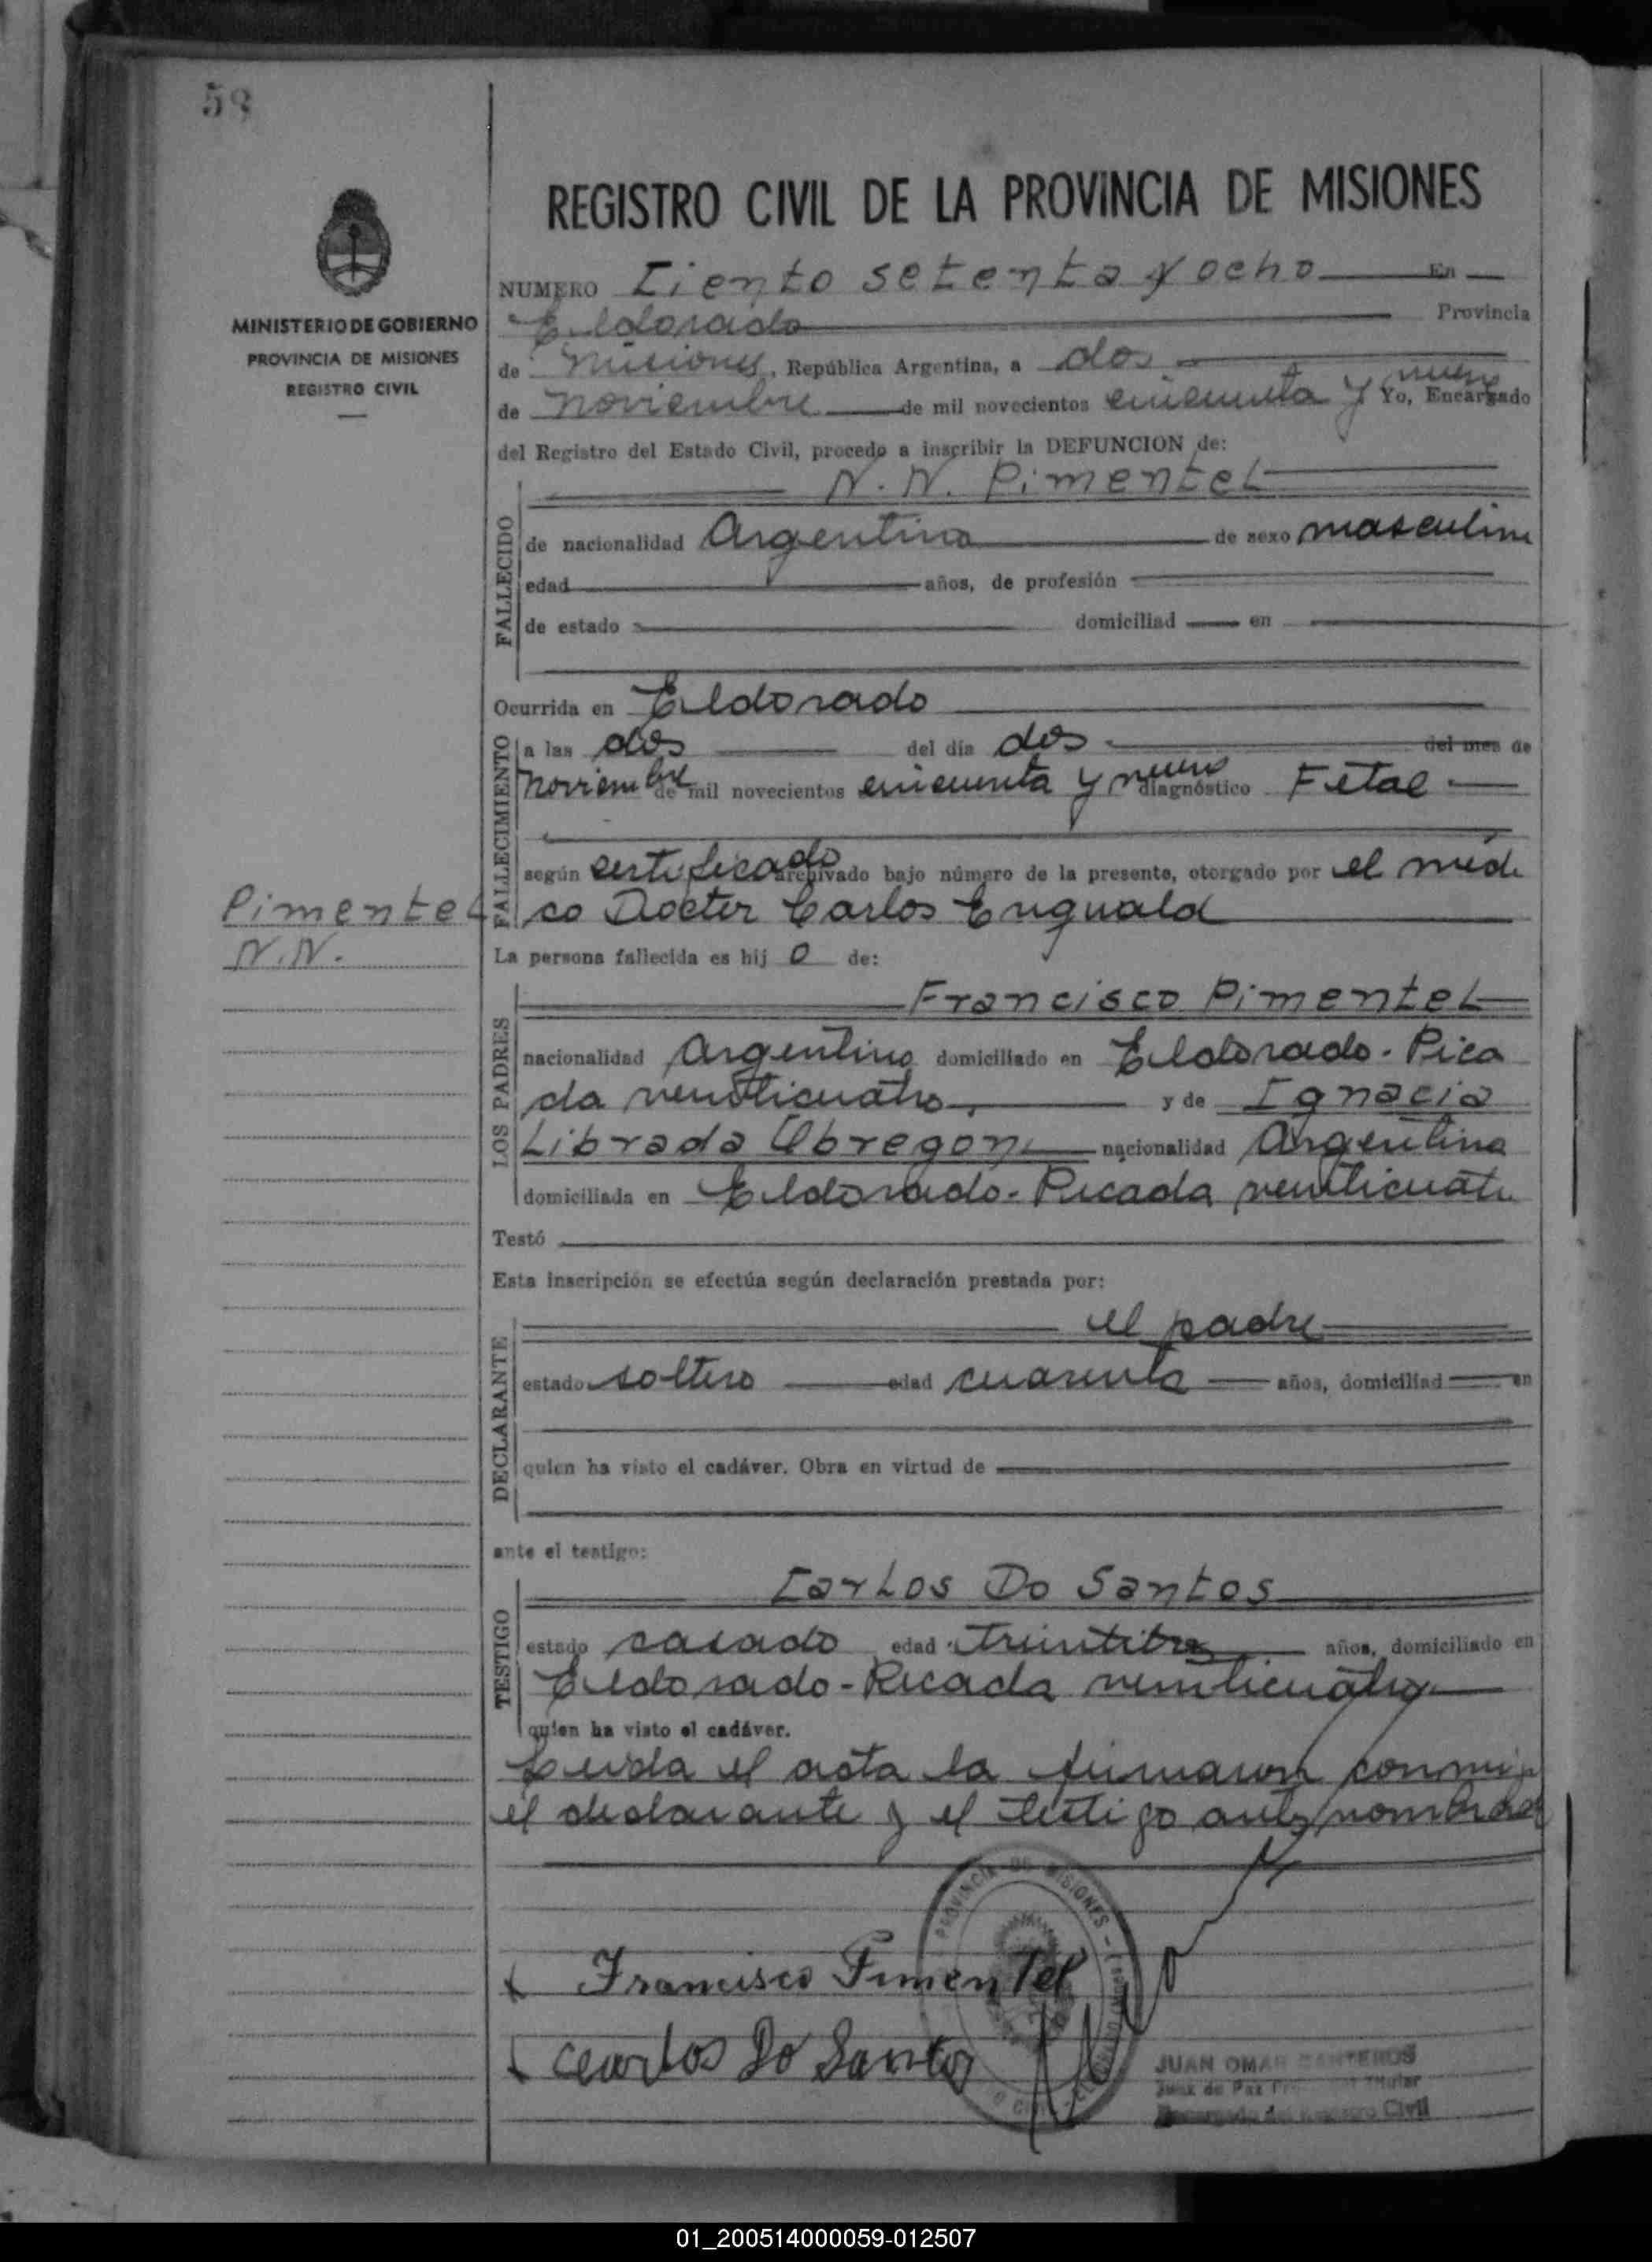 59
REGISTRO CIVIL DE LA PROVINCIA DE MISIONES
MINISTERIO DE GOBIERNO
PROVINCIA DE MISIONES
REGISTRO CIVIL
NUMERO Ciento setenta y ocho En
Eldorado Provincia
de Misiones, República Argentina, a dos
de noviembre de mil novecientos cincuenta y nueve Yo, Encargado
del Registro del Estado Civil, procedo a inscribir la DEFUNCION de:
N. N. Pimentel
FALLECIDO
de nacionalidad Argentina de sexo masculino
edad años, de profesión
de estado domiciliad en
Ocurrida en Eldorado
FALLECIMIENTO
a las dos del día dos del mes de
noviembre de mil novecientos cincuenta y nueve diagnóstico Fetal
según certificado archivado bajo número de la presente, otorgado por el médi
co Doctor Carlos
Pimentel
N.N.
La persona fallecida es hij o de:
Francisco Pimentel
LOS PADRES
nacionalidad Argentino domiciliado en Eldorado - Pica
da veinticuatro y de Ignacia
Librada Obregon nacionalidad Argentina
domiciliada en Eldorado - Picada veinticuatro
Testó
Esta inscripción se efectúa según declaración prestada por:
el padre
DECLARANTE
estado soltero edad cuarenta años, domiciliad en
quien ha visto el cadáver. Obra en virtud de
ante el testigo:
Carlos Do Santos
TESTIGO
estado casado edad treintitres años, domiciliado en
Eldorado - Picada veinticuatro
quien ha visto el cadáver.
Leida el acta la firmaron conmigo
el declarante y el testigo antes nombrado
PROVINCIA DE MISIONES
Francisco Pimentel
Carlos Do Santos
JUAN OMAR
Juez de Paz Titular
Encargado del Registro Civil
01_200514000059-012507